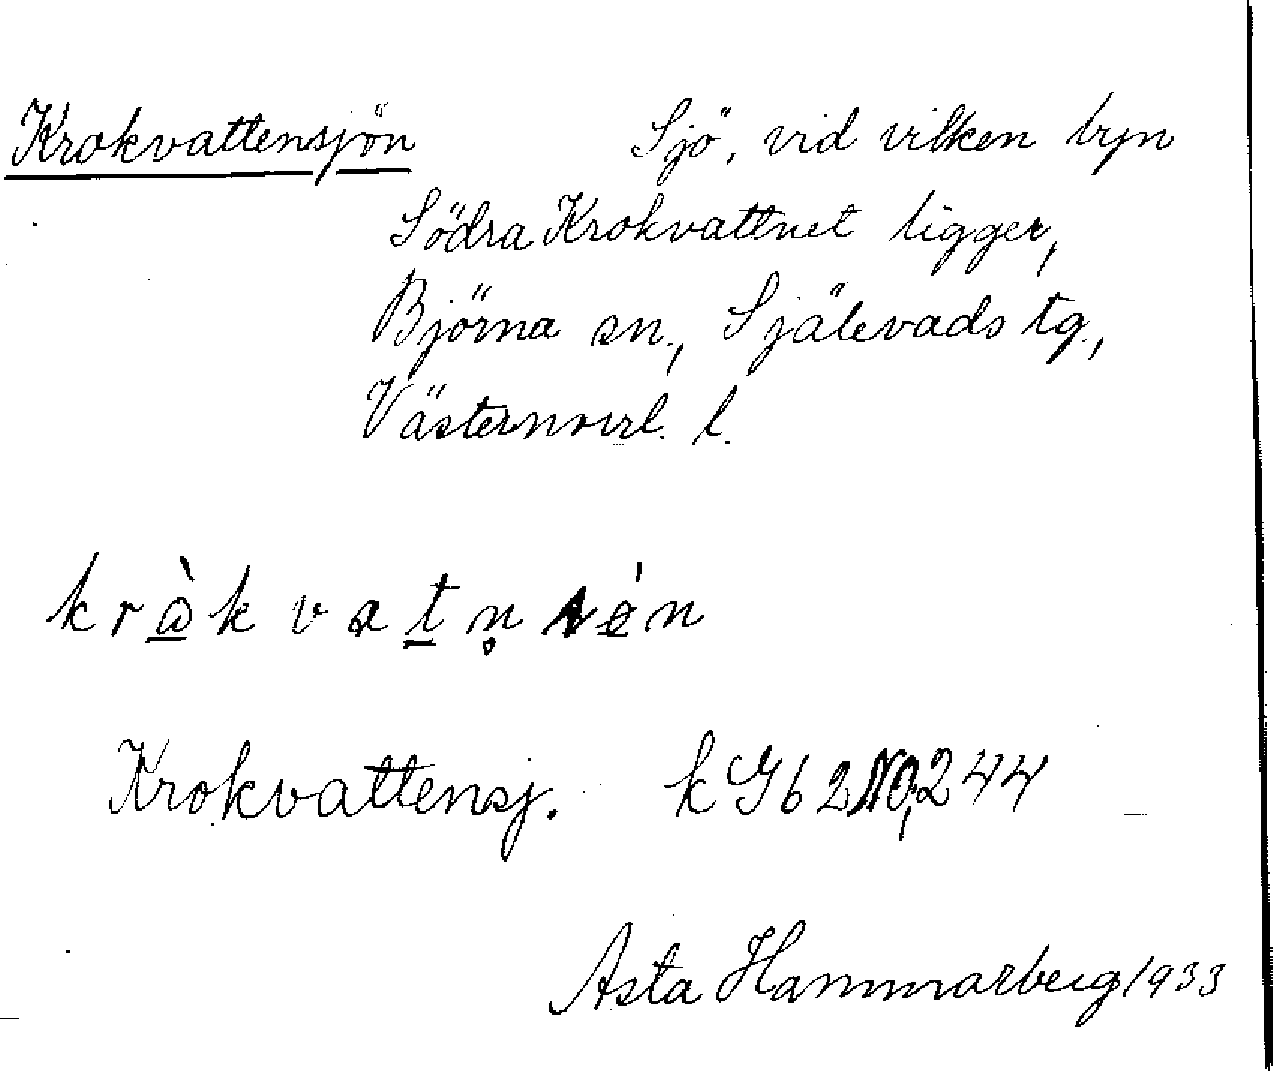 Krokvattensjön Sjö, vid vilken byn
Södra Krokvattnet ligger,
Björna sn., Själevads tg.,
Västernorrl. l.
Krokvattensj. k Gb 2 NO, 244
Asta Hammarberg 1933